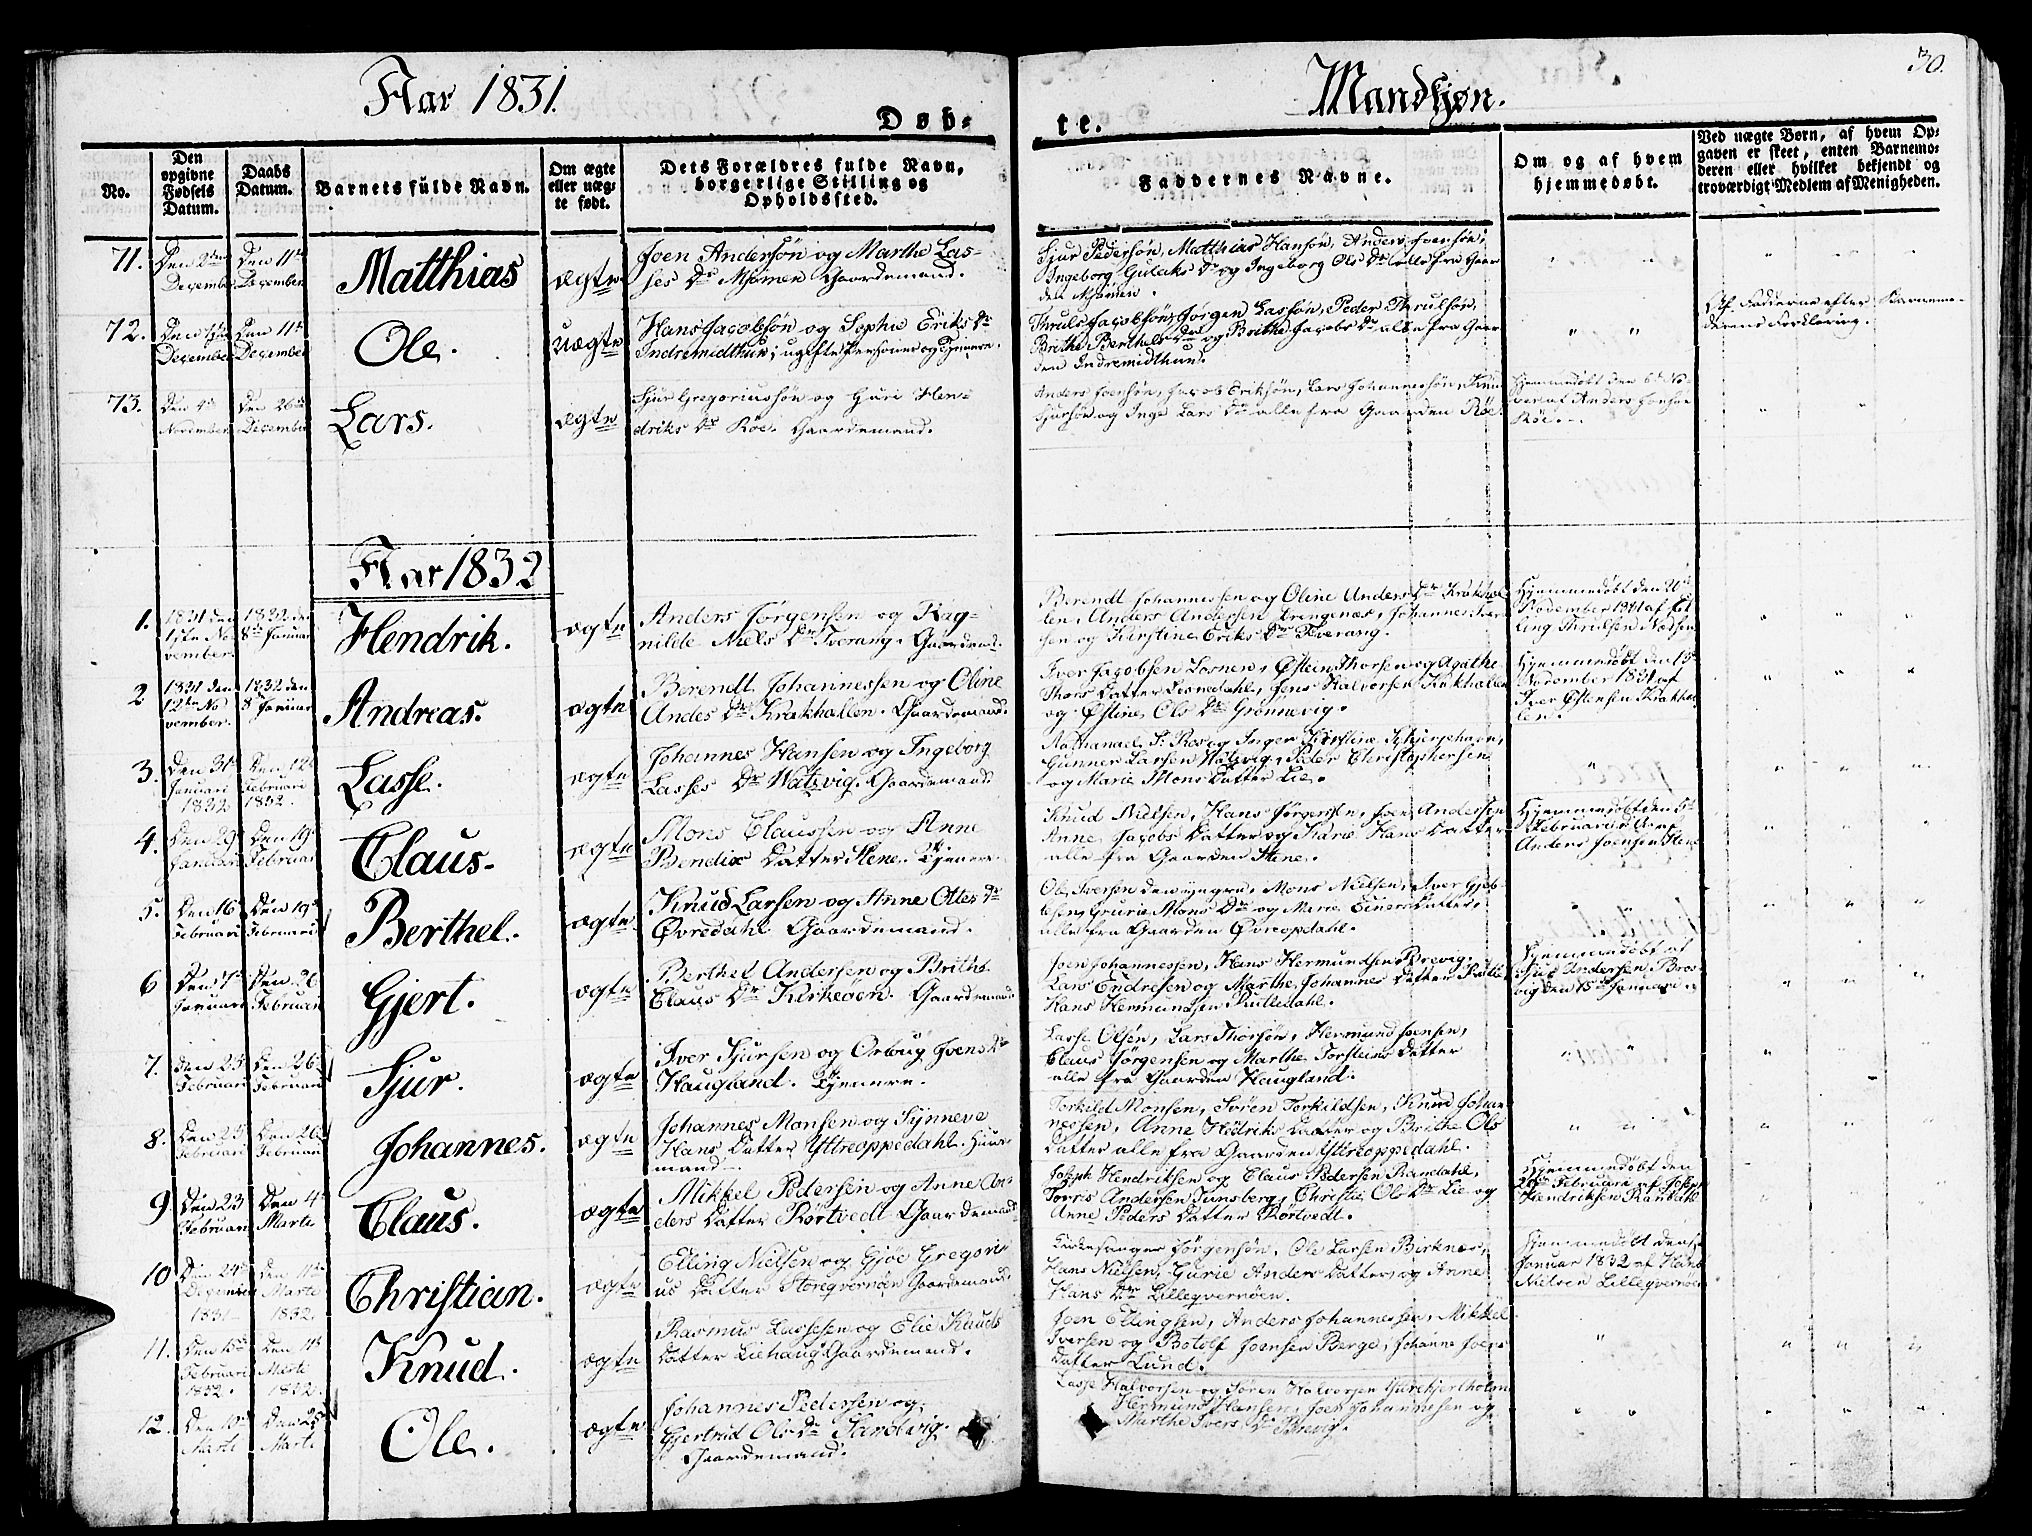 Aar 1831.
Døb-
te.
Mandkjøn.
30.
No.
Den opgivne Fødsels Datum.
Daabs Datum.
Barnets fulde Navn.
Om ægte eller uægte født.
Dets Forældres fulde Navn,
borgerlige Stilling og
Opholdssted.
Faddernes Navne.
Om og af hvem
hjemmedøbt.
Ved uægte Børn, af hvem Op-
gaven er skeet, enten Barnemo-
deren eller hvilket bekjendt og
troværdigt Medlem af Menigheden.
71.
December
Den 11te
December
Matthias
ægte
Joen Andersøn og Marthe Las-
ses Dr Mjømen Gaardemand.
Sjur Pedersøn, Matthias Hansøn, Anders Joensøn,
Ingeborg Gulaks Dr og Ingeborg Ols Dr alle fra Gaar
den Mjømen.
72.
December
Den 11te
December
Ole.
uægte
Hans Jacobsøn og Sophie Eriks Dr
Indremidthun; ugifte Personer og Tjenere.
Thruls Jacobsøn, Jørgen Lassøn, Peder Thrulsøn,
Brithe Berthels Dr og Brithe Jacobs Dr alle fra Gaar
den Indremidthun.
Fadderne efter Barnemo-
derens Forklaring.
73.
November
Den 26de
December
Lars.
ægte
Sjur Gregoriussøn og Guri Hen-
driks Dr Røe. Gaardemand.
Anders Joensøn, Jacob Eriksøn, Lars Johannessøn,
Sjursøn og Inge Lars Dr alle fra Gaarden Røe.
Hjemmedøbt den 6te No-
af Anders Joensøn
Røe.
Aar 1832
1.
1831 den
No-
vember.
1832 den
8de Januar
Hendrik.
ægte
Anders Jørgensen og Rag-
nilde Niels Dr Tverang. Gaardemd.
Berendt Johannessen og Oline Anders Dr Krakhel
len, Anders Andersen Drengenæs, Johannes Iver-
sen og Kirstine Eriks Dr Tverang.
Hjemmedøbt den
November 1831 af El-
ling Thrulsen
2
1831 den
12te No
vember.
1832 den
8de Januar
Andreas.
ægte
Berendt Johannessen og Oline
Andes Dr Krakhallen. Gaardemand.
Iver Jacobsen Losnen, Østein Thorsen og Agathe
Thors Datter Losnedahl, Jens Halvorsen Krakhallen
og Østine Ols Dr Grønnevig.
Hjemmedøbt den 15de
November 1831 af
Iver Østensen Krakhel
len.
3.
Den 31te
Januari
1832
Den 12te
Februari
1832.
Lasse.
ægte
Johannes Hansen og Ingeborg
Lasses Dr Watzvig. Gaardemand.
Inger Kirstine
Gunner Larsen Watzvig, Peder Christophersen
og Marie Mons Datter Lie.
4.
Den 29de
Januari
Den 19de
Februari
Claus.
ægte
Mons Claussen og Anne
Bendix Datter Stene. Tjenere.
Knud Nielsen, Hans Jørgensen, Joen Andersen
Anne Jacobs Datter og Karie Hans Datter
alle fra Gaarden Stene.
Hjemmedøbt den 5te
Februari af
Anders Joensen Stene
5.
Den 16de
Februari
Den 19de
Februari
Berthel.
ægte
Knud Larsen og Anne Oles Dr
Øvredahl Gaardemand.
Ole Iversen den yngre, Mons Nielsen, Iver
Gurie Mons Dr og Marie Einers Datter,
alle fra Gaarden Øvreopdahl.
6
Den 7de
Januari
Den 26
Februari
Gjert.
ægte
Berthel Andersen og Brithe
Claus Dr Kirkeøen. Gaardemand.
Joen Johannessen, Hans Hermundsen Brevig,
Lars Endresen og Marthe Johannes Datter
Hans Hermundsen Rulledahl.
Hjemmedøbt af
Sjur Andersen Bre-
vig den 15de Januari.
7.
Den 23
Februari
Den 26de
Februari
Sjur.
ægte
Iver Sjursen og Orboug Joens Dr
Haugland. Tjenere.
Lasse Olsøn, Lars Thorsøn, Hermund Joensen,
Claus Jørgensen og Marthe Torsteins Datter
alle fra Gaarden Haugland.
8.
Den 23
Februari
Den 26
Februari
Johannes.
ægte
Johannes Monsen og Synneve
Hans Datter Yttreoppedahl. Huus-
mand.
Torkild Monsen, Søren Torkildsen, Knud Johan
nessen, Anne Hedriks Datter og Brithe Ols
Datter alle fra Gaarden Yttreoppedahl.
9.
Den 23
Februari
Den 4de
Martz
Claus.
ægte
Mikkel Pedersen og Anne An-
ders Datter Rørtvedt Gaardemand.
Joseph Hendriksen og Claus Pedersen Randahl,
Torris Andersen Tunsberg, Christie Ols Dr Lie og
Anne Peders Datter Rørtvedt.
Hjemmedøbt den
Februari af Joseph
Hendriksen Randahl
10
Den 24de
December
1831
Den 11te
Martz
1832.
Christian.
ægte
Elling Nielsen og Gjøe Gregori-
us Datter Storeqvernøen Gaardemand.
Kirkesanger Jørgensøn, Ole Larsen Birknæs,
Hans Nielsen, Gurie Anders Datter, og Anne
Hans Dr Lilleqvernøen.
Hjemmedøbt den
Januar 1832 af Hans
Nielsen Lilleqvernøen
11.
Den 15de
Februari
1832.
Den 11te
Martz
1832.
Knud.
ægte
Rasmus Lassesen og Elie Knuds
Datter Liehaug Gaardemand.
Joen Ellingsen, Anders Johannessen, Mikkel
Iversen og Botolf Joensen Berge, Johanne Joens
Datter Lund.
12.
Den 10de
Martz
Den 25
Martz
Ole.
ægte
Johannes Pedersen og
Gjertrud Ols Dr Sandvig.
Gaardemand.
Lasse Halvorsen og Søren Halvorsen
Hermund Hansen, Joen Johannesen og
Marthe Ivers Dr Brevig.